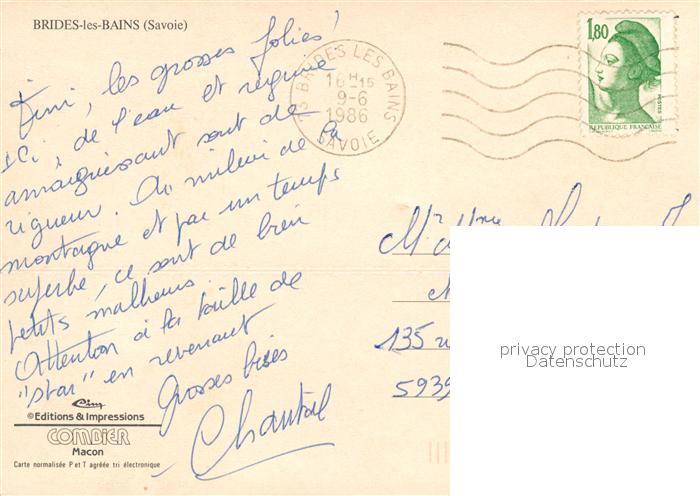 BRIDES-les-BAINS (Savoie)
Fini, les grosses folies !
Ici, de l'eau et régime
amaigrissant sont de
rigueur. Au milieu de la
montagne et par un temps
superbe, ce sont de bien
petits malheurs
Attention à la taille de
"star" en revenant
Grosses bises
Chantal
73 BRIDES LES BAINS
16H15
9-6
1986
SAVOIE
1,80
POSTES
REPUBLIQUE FRANÇAISE
Mr & Mme
135
5939
privacy protection
Datenschutz
Cim
©Editions & Impressions
COMBIER
Macon
Carte normalisée P et T agréée tri électronique